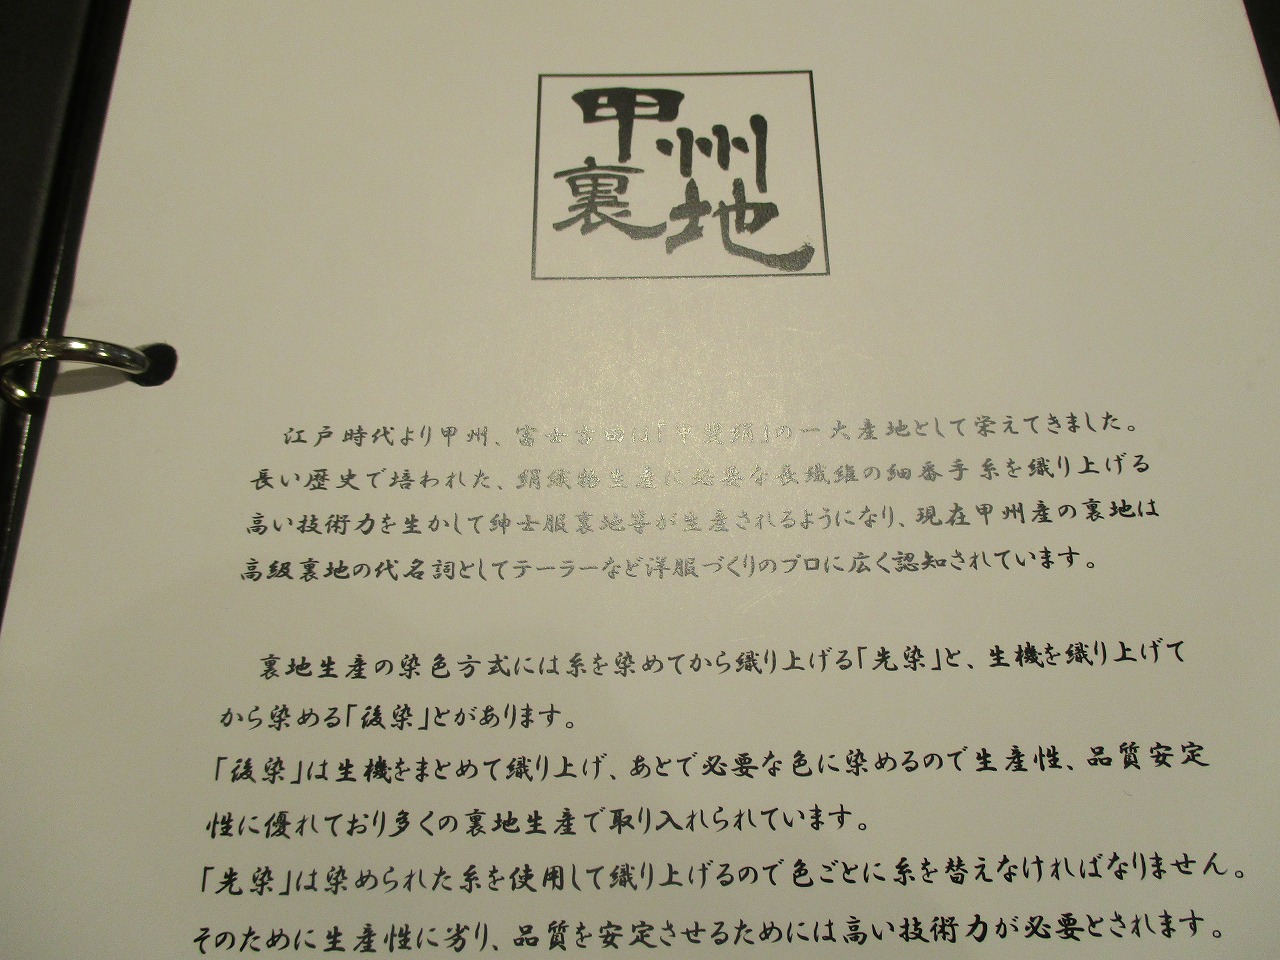 甲州
裏地
江戸時代より甲州、富士吉田は「甲斐絹」の一大産地として栄えてきました。
長い歴史で培われた、絹織物生産に必要な長繊維の細番手糸を織り上げる
高い技術力を生かして紳士服裏地等が生産されるようになり、現在甲州産の裏地は
高級裏地の代名詞としてテーラーなど洋服づくりのプロに広く認知されています。
裏地生産の染色方式には糸を染めてから織り上げる「先染」と、生機を織り上げて
から染める「後染」とがあります。
「後染」は生機をまとめて織り上げ、あとで必要な色に染めるので生産性、品質安定
性に優れており多くの裏地生産で取り入れられています。
「先染」は染められた糸を使用して織り上げるので色ごとに糸を替えなければなりません。
そのために生産性に劣り、品質を安定させるためには高い技術力が必要とされます。